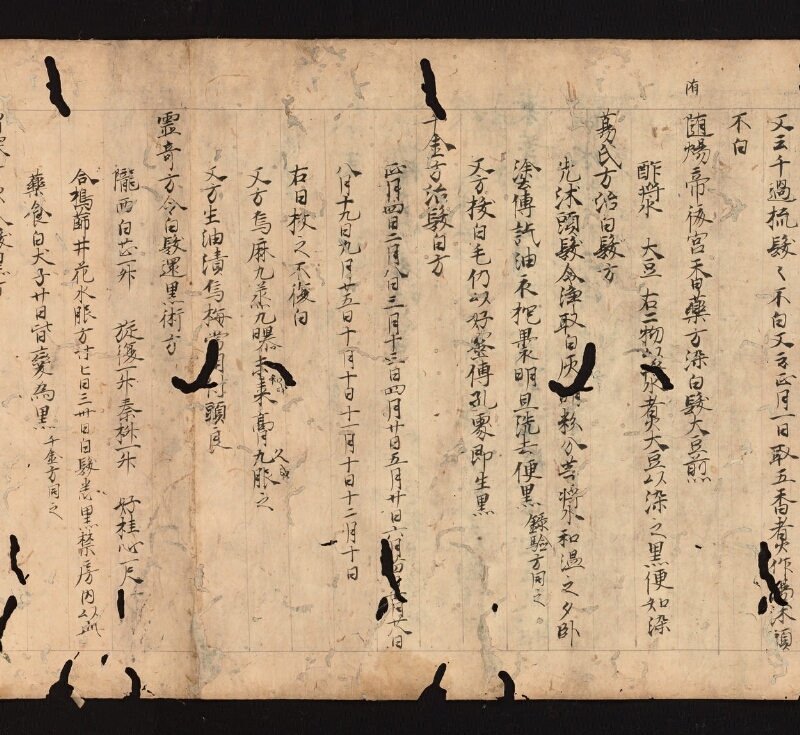 又云千過梳髮々不白又云正月一日取五香煮作湯沐頭
不白
隋煬帝後宮香藥方染白髮大豆煎
酢漿 大豆 右二物以漿煮大豆以染之黑便如染
葛氏方治白髮方
先沐頭髮令淨取白灰胡粉分等漿和溫之夕臥
塗傅訖油衣抱裹明旦洗去便黑 錄驗方同之
又方拔白毛仍以好蜜傅孔處即生黑
千金方治髮白方
正月四日二月八日三月十三日四月廿日五月廿日六月 月廿八日
八月十九日九月廿五日十月十日十一月十日十二月十日
右日拔之不復白
又方烏麻九蒸九曝末棗膏丸服之 久
又方生油漬烏梅常用付頭良
靈奇方令白髮還黑術方
隴西白芷一升 旋復一升 秦椒一升 好桂心一尺
合搗篩井花水服方寸匕日三卅日白髮悉黑禁房內以此
藥食白犬子廿日皆變為黑 千金方同之